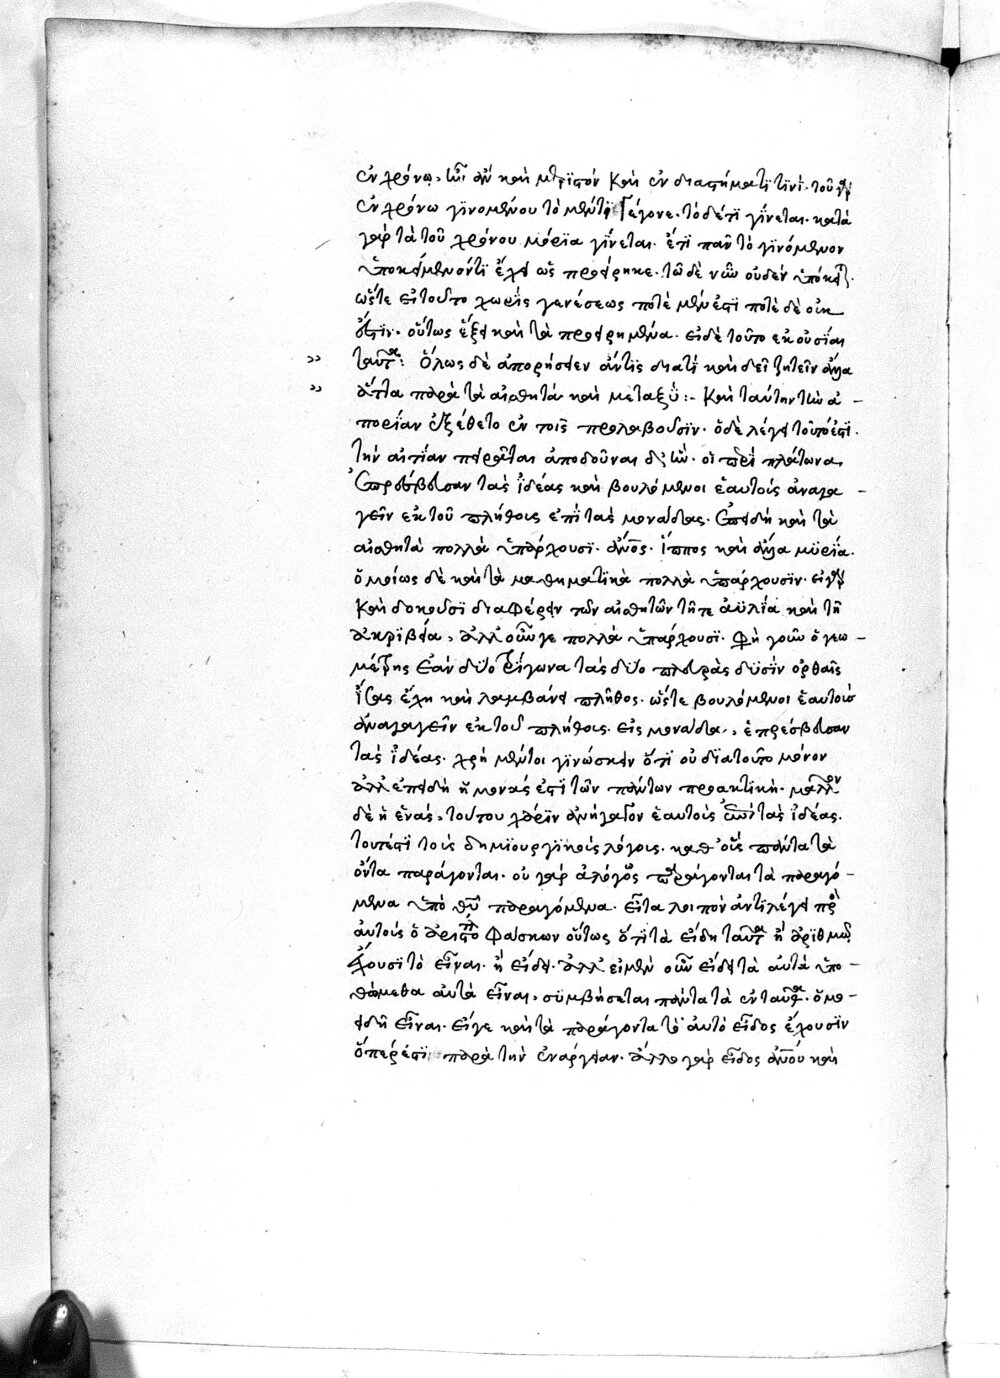 ἐν χρόνῳ, καὶ μεριστόν καὶ ἐν διαστήματί τινι. τοῦ γὰρ
ἐν χρόνω γινομένου τὸ μέν τι γέγονε. τὸ δέ τι γίνεται. κατὰ
γὰρ τὰ τοῦ χρόνου μόρια γίνεται. ἔτι πᾶν τὸ γινόμενον
ὑποκείμενόν τι ἔχει ὡς προείρηκε. τῶ δὲ νῦν οὐδὲν ὑπόκειται.
ὥστε εἰ τοῦτο χωρὶς γενέσεως ποτὲ μὲν ἐστὶ ποτὲ δὲ οὐκ
ἔστιν. οὕτως ἕξει καὶ τὰ προειρημένα. εἰ δὲ τοῦτο ἐκ οὐσίαι
ταῦτα: Ὅλως δὲ ἀπορήσειεν ἄν τις διατί καὶ δεῖ ζητεῖν ἄλλα
ἄττα παρὰ τὰ αἰσθητὰ καὶ μεταξύ:- Καὶ ταύτην τὴν ἀ-
πορίαν ἐξέθετο ἐν τοῖς προλαβοῦσιν. ὃ δὲ λέγει τοῦτό ἐστι.
τὴν αἰτίαν πειρᾶται ἀποδοῦναι δι' ἣν οἱ περὶ πλάτωνα
ἐπρέσβευσαν τὰς ἰδέας καὶ βουλόμενοι ἑαυτοὺς ἀναγα-
γεῖν ἐκ τοῦ πλήθους ἐπὶ τὰς μονάδας. ἐπειδὴ καὶ τὰ
αἰσθητὰ πολλὰ ὑπάρχουσι. ἄνος. ἵππος καὶ ἄλλα μυρία.
ὁμοίως δὲ καὶ τὰ μαθηματικὰ πολλὰ ὑπάρχουσιν. εἰ γὰρ
καὶ δοκοῦσι διαφέρειν τῶν αἰσθητῶν τῆ τε ἀϋλία καὶ τῆ
ἀκριβεία, ἀλλ' οὖν γε πολλὰ ὑπάρχουσι. φησὶ γοῦν ὁ γεω-
μέτρης ἐὰν δύο τρίγωνα τὰς δύο πλευρὰς δυσὶν ὀρθαῖς
ἴσας ἔχη καὶ λαμβάνει πλῆθος. ὥστε βουλόμενοι ἑαυτοὺς
ἀναγαγεῖν ἐκ τοῦ πλήθους. εἰς μονάδα, ἐπρέσβευσαν
τὰς ἰδέας. χρὴ μέντοι γινώσκειν ὅτι οὐ διὰ τοῦτο μόνον
ἀλλ' ἐπειδὴ ἡ μονάς ἐστι τῶν πάντων πρακτικὴ. μᾶλλον
δὲ ἡ ἑνάς, τούτου χάριν ἀνήγαγον ἑαυτοὺς ἐπὶ τὰς ἰδέας.
τουτέστι τοὺς δημιουργικοὺς λόγους. καθ' οὓς πάντα τὰ
ὄντα παράγονται. οὐ γὰρ ἀλόγως παράγονται τὰ παραγό-
μενα ὑπὸ θυ παραγόμενα. εἶτα λοιπὸν ἀντιλέγει πρὸς
αὐτοὺς ὁ ἀριστο φάσκων οὕτως ὅτι τὰ εἴδη ταῦτα ἢ ἀριθμῶ
ἔχουσι τὸ εἶναι. ἢ εἴδει. ἀλλ' εἰ μὲν οὖν εἴδει τὰ αὐτὰ ὑπο-
θώμεθα αὐτὰ εἶναι, συμβήσεται πάντα τὰ ἐνταῦθα. ὁμο-
ειδῆ εἶναι. εἴγε καὶ τὰ παράγοντα τὸ αὐτὸ εἶδος ἔχουσιν
ὅπερ ἐστὶ παρὰ τὴν ἐνάργειαν. ἄλλο γὰρ εἶδος ἀνου καὶ